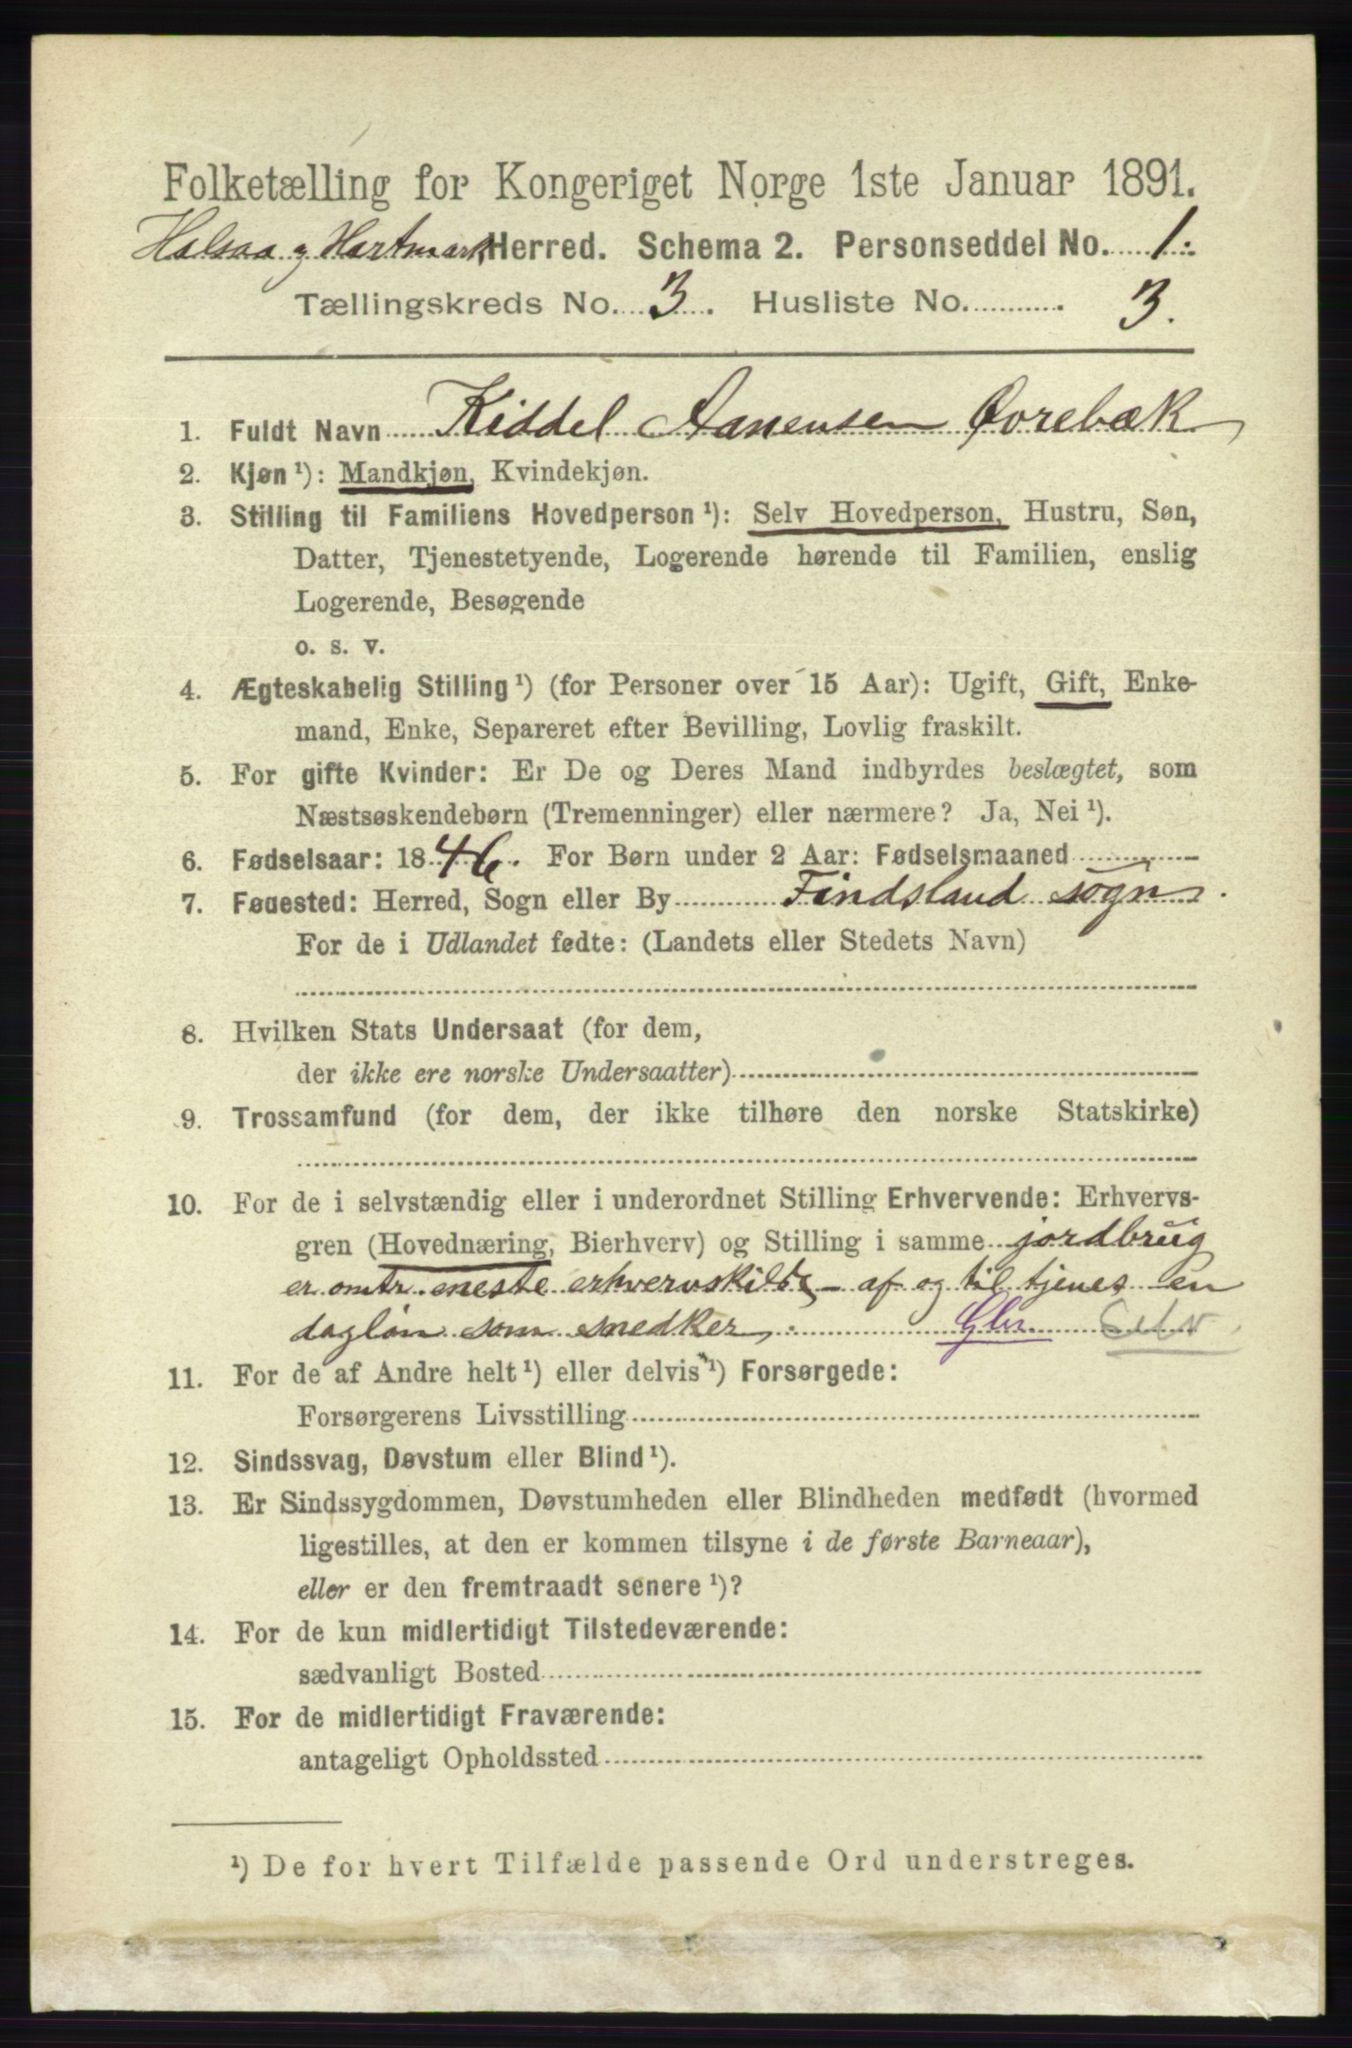 Folketælling for Kongeriget Norge 1ste Januar 1891.
Halsaa og Hartmark Herred. Schema 2. Personseddel No. 1.
Tællingskreds No. 3. Husliste No. 3.
1. Fuldt Navn Kiddel Aanensen Øvrebæk
2. Kjøn ¹): Mandkjøn, Kvindekjøn.
3. Stilling til Familiens Hovedperson ¹): Selv Hovedperson, Hustru, Søn,
Datter, Tjenestetyende, Logerende hørende til Familien, enslig
Logerende, Besøgende
o. s. v.
4. Ægteskabelig Stilling ¹) (for Personer over 15 Aar): Ugift, Gift, Enke-
mand, Enke, Separeret efter Bevilling, Lovlig fraskilt.
5. For gifte Kvinder: Er De og Deres Mand indbyrdes beslægtet, som
Næstsøskendebørn (Tremenninger) eller nærmere? Ja, Nei ¹).
6. Fødselsaar: 1846. For Børn under 2 Aar: Fødselsmaaned
7. Fødested: Herred, Sogn eller By Findsland sogn.
For de i Udlandet fødte: (Landets eller Stedets Navn)
8. Hvilken Stats Undersaat (for dem,
der ikke ere norske Undersaatter)
9. Trossamfund (for dem, der ikke tilhøre den norske Statskirke)
10. For de i selvstændig eller i underordnet Stilling Erhvervende: Erhvervs-
gren (Hovednæring, Bierhverv) og Stilling i samme jordbrug
er omtr. eneste erhvervskilde – af og til tjenes en
dagløn som snedker. Gbr. Selv
11. For de af Andre helt ¹) eller delvis ¹) Forsørgede:
Forsørgerens Livsstilling
12. Sindssvag, Døvstum eller Blind ¹).
13. Er Sindssygdommen, Døvstumheden eller Blindheden medfødt (hvormed
ligestilles, at den er kommen tilsyne i de første Barneaar),
eller er den fremtraadt senere ¹)?
14. For de kun midlertidigt Tilstedeværende:
sædvanligt Bosted
15. For de midlertidigt Fraværende:
antageligt Opholdssted
¹) De for hvert Tilfælde passende Ord understreges.